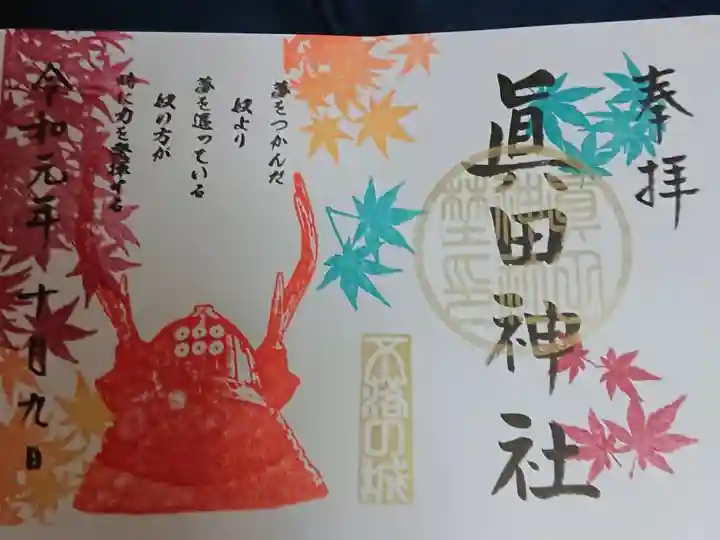 奉拝
眞田神社
不落の城
夢をつかんだ
奴より
夢を追っている
奴の方が
時に力を発揮する
令和元年十月九日